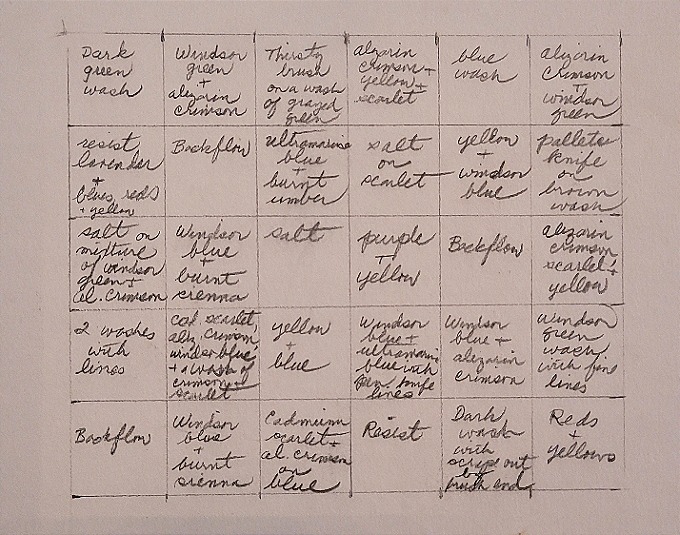 Dark
green
wash
Windsor
green
+
alizarin
crimson
Thirsty
brush
on a wash
of grayed
green
alizarin
crimson +
yellow +
scarlet
blue
wash
alizarin
crimson
+
windsor
green
resist
lavender
+
blues, reds
+ yellow
Backflow
ultramarine
blue
+
burnt
umber
salt
on
scarlet
yellow
+
windsor
blue
palletes
knife
on
brown
wash
salt on
mixture
of windsor
green +
al. crimson
Windsor
blue
+
burnt
sienna
salt
purple
+
yellow
Backflow
alizarin
crimson
scarlet, +
yellow
2 washes
with
lines
cad. scarlet,
aliz. crimson,
windsor blue,
+ a wash of
crimson +
scarlet
yellow
+
blue
Windsor
blue +
ultramarine
blue with
pen knife
lines
Windsor
blue +
alizarin
crimson
Windsor
green
wash
with fine
lines
Backflow
Windsor
blue
+
burnt
sienna
Cadmium
scarlet +
al. crimson
on
blue
Resist
Dark
wash
with
scrape out
by
brush end
Reds
+
yellows